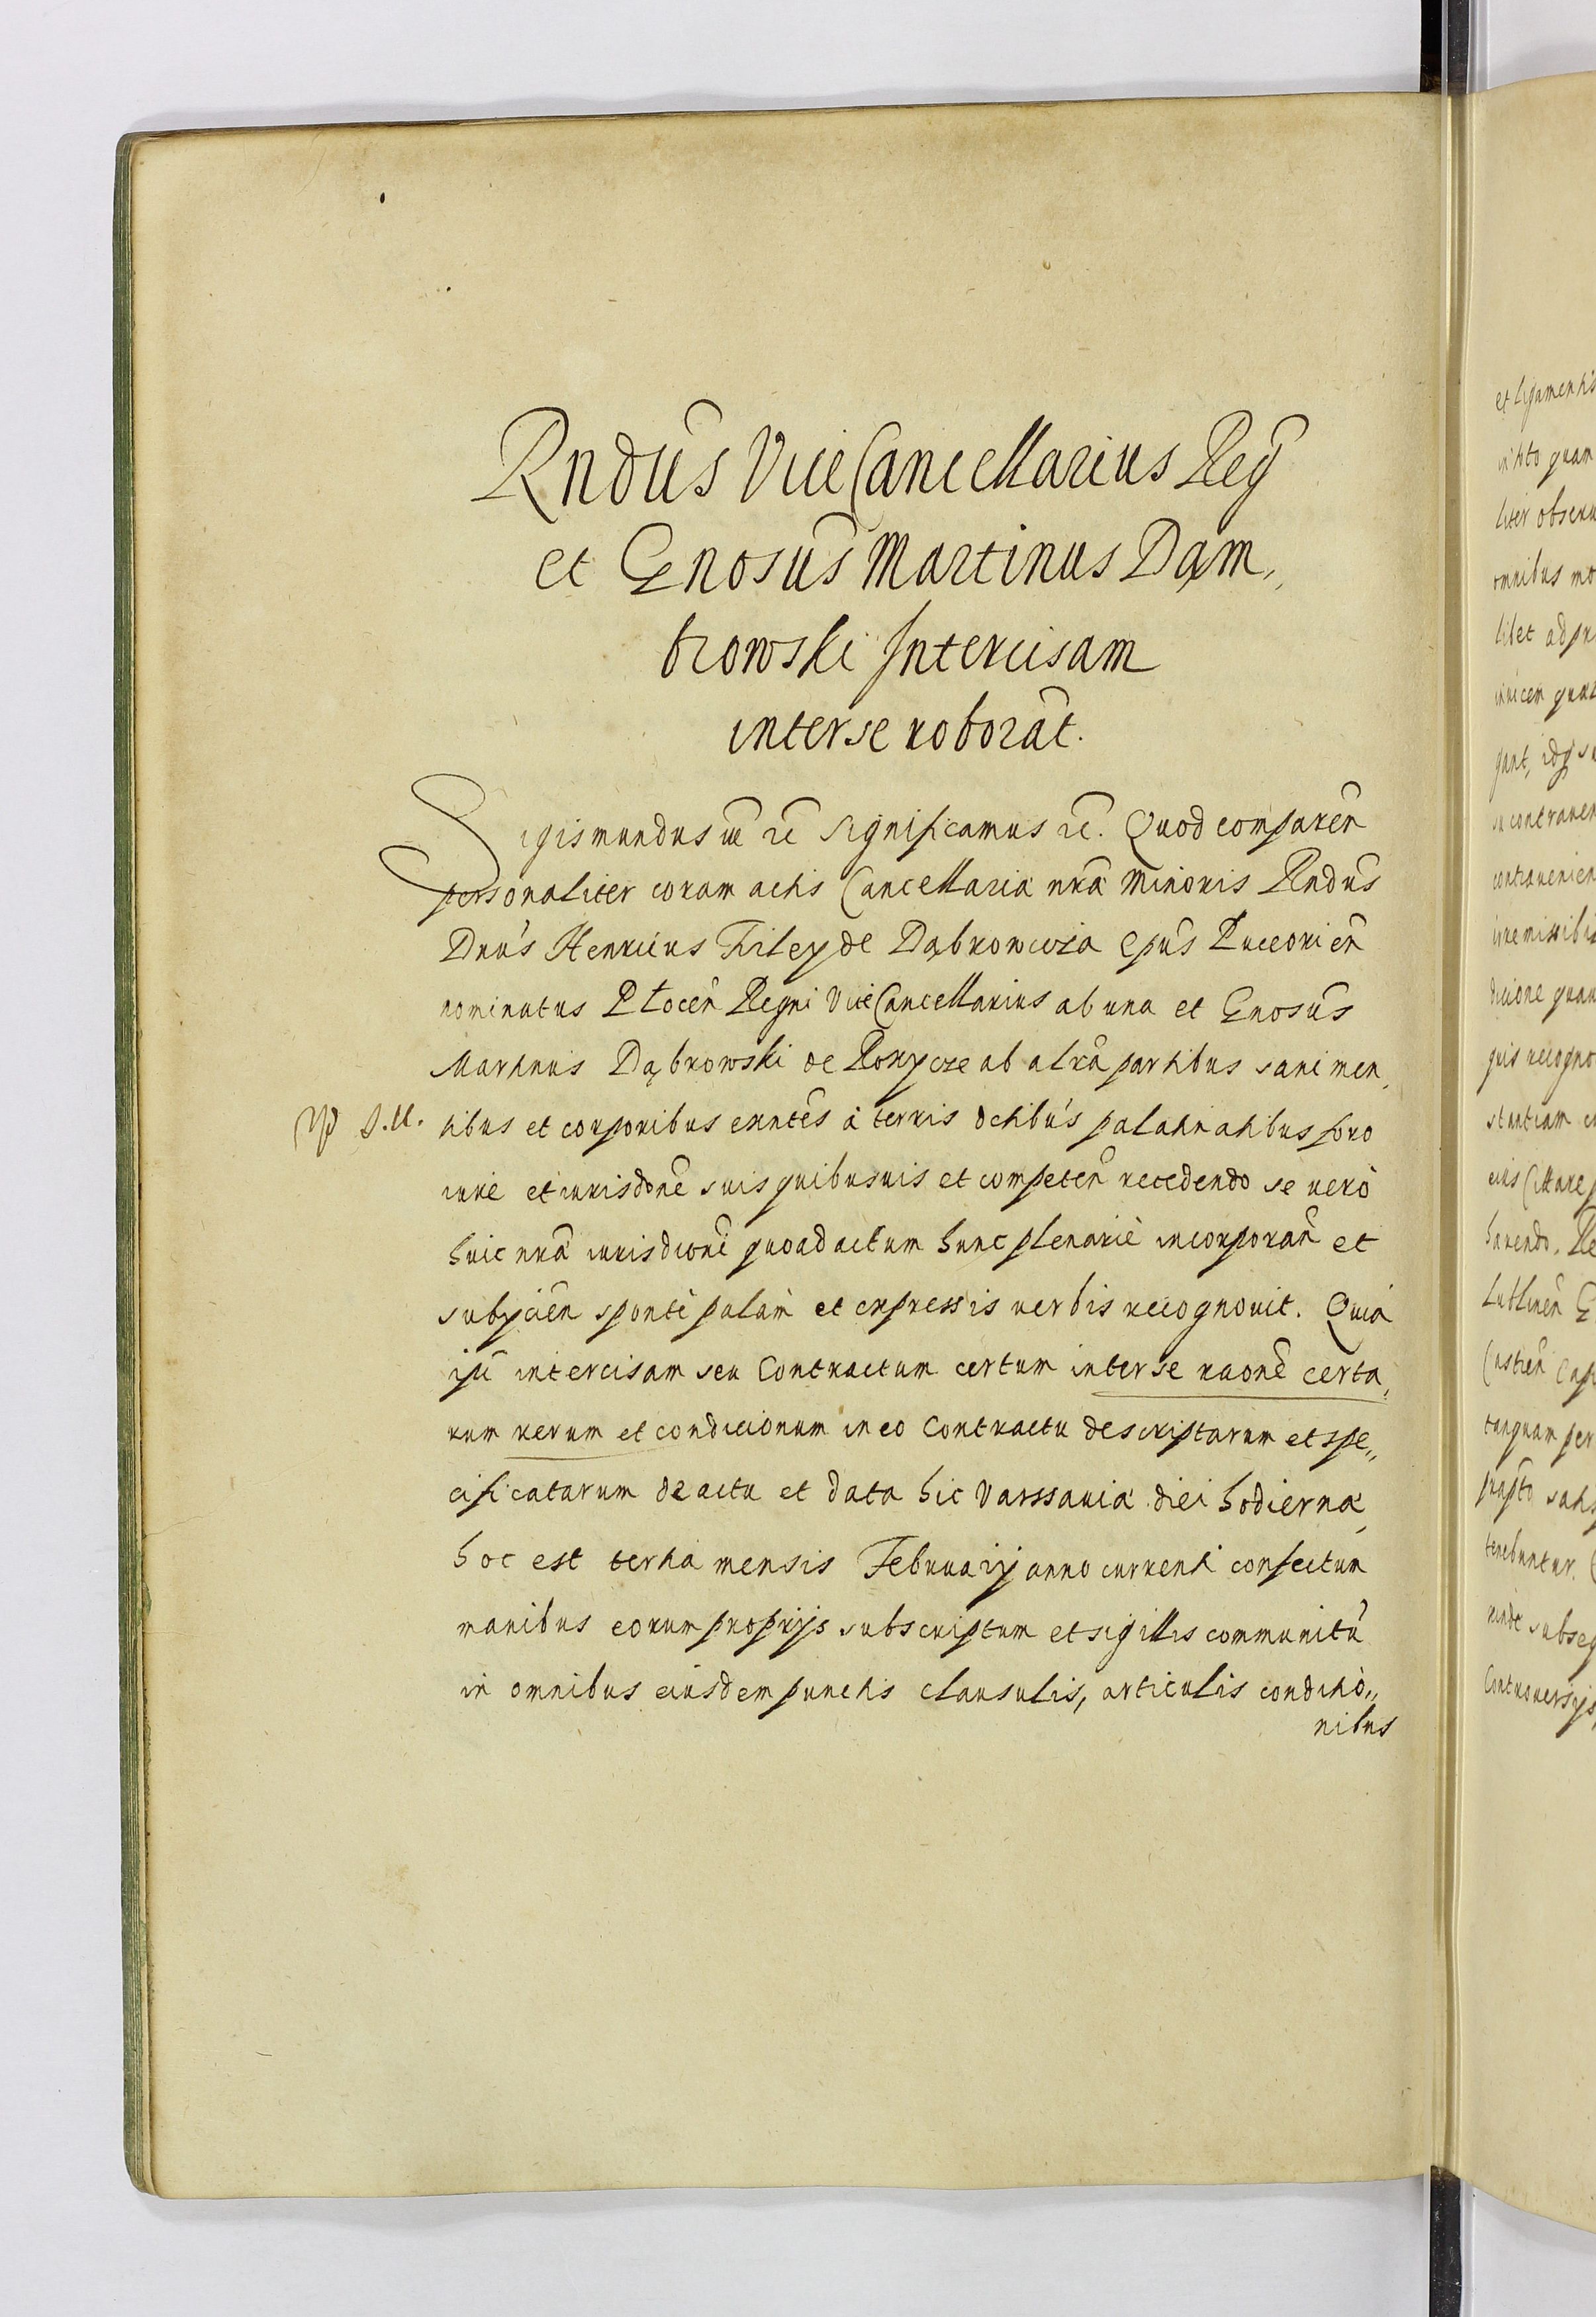 Rndus ViceCancellarius Reg
et Gnosus Martinus Dąm,,
browski Intercisam
inter se roborat.
Sigismundus etc significamus etc. Quod comparen
personaliter coram actis Cancellaria nra minoris Rndus
Dnus Henricus Firley de Dąbrowicza Epus Luceorien
nominatus Plocen Regni ViceCancellarius ab una et Gnosus
Martinus Dąbrowski de Konycze ab altra partibus sani men,
tibus et corporibus exntes a terris dctibus palatinatibus foro
iure et iurisdone suis quibusuis et competen recedendo se vero
huic nra iurisdictioni quoad actum hunc plenarie incorporan et
subycien sponte palam et expressis verbis recognovit. Quia
ipi intercisam seu Contractum certum inter se raone certa,,
rum rerum et condicionum in eo Contractu descriptarum et spe,,
cificatarum de actu et data hic Varssauia diei hodierna
hoc est tertia mensis Februarij anno currenti confectum
manibus eorum proprijs subscriptum et sigillis communitu
in omnibus eiusdem punctis clausulis, articulis conditio,,
nibus
et ligamentis
liter obseru
omnibus mo
libet ad pr
inuicem
contrauen
contrauenien
irremissib
dicione quam
quis recogno
stantiam
Lublinen G
tanquam per
tenebuntur.
subseq
Controuersijs